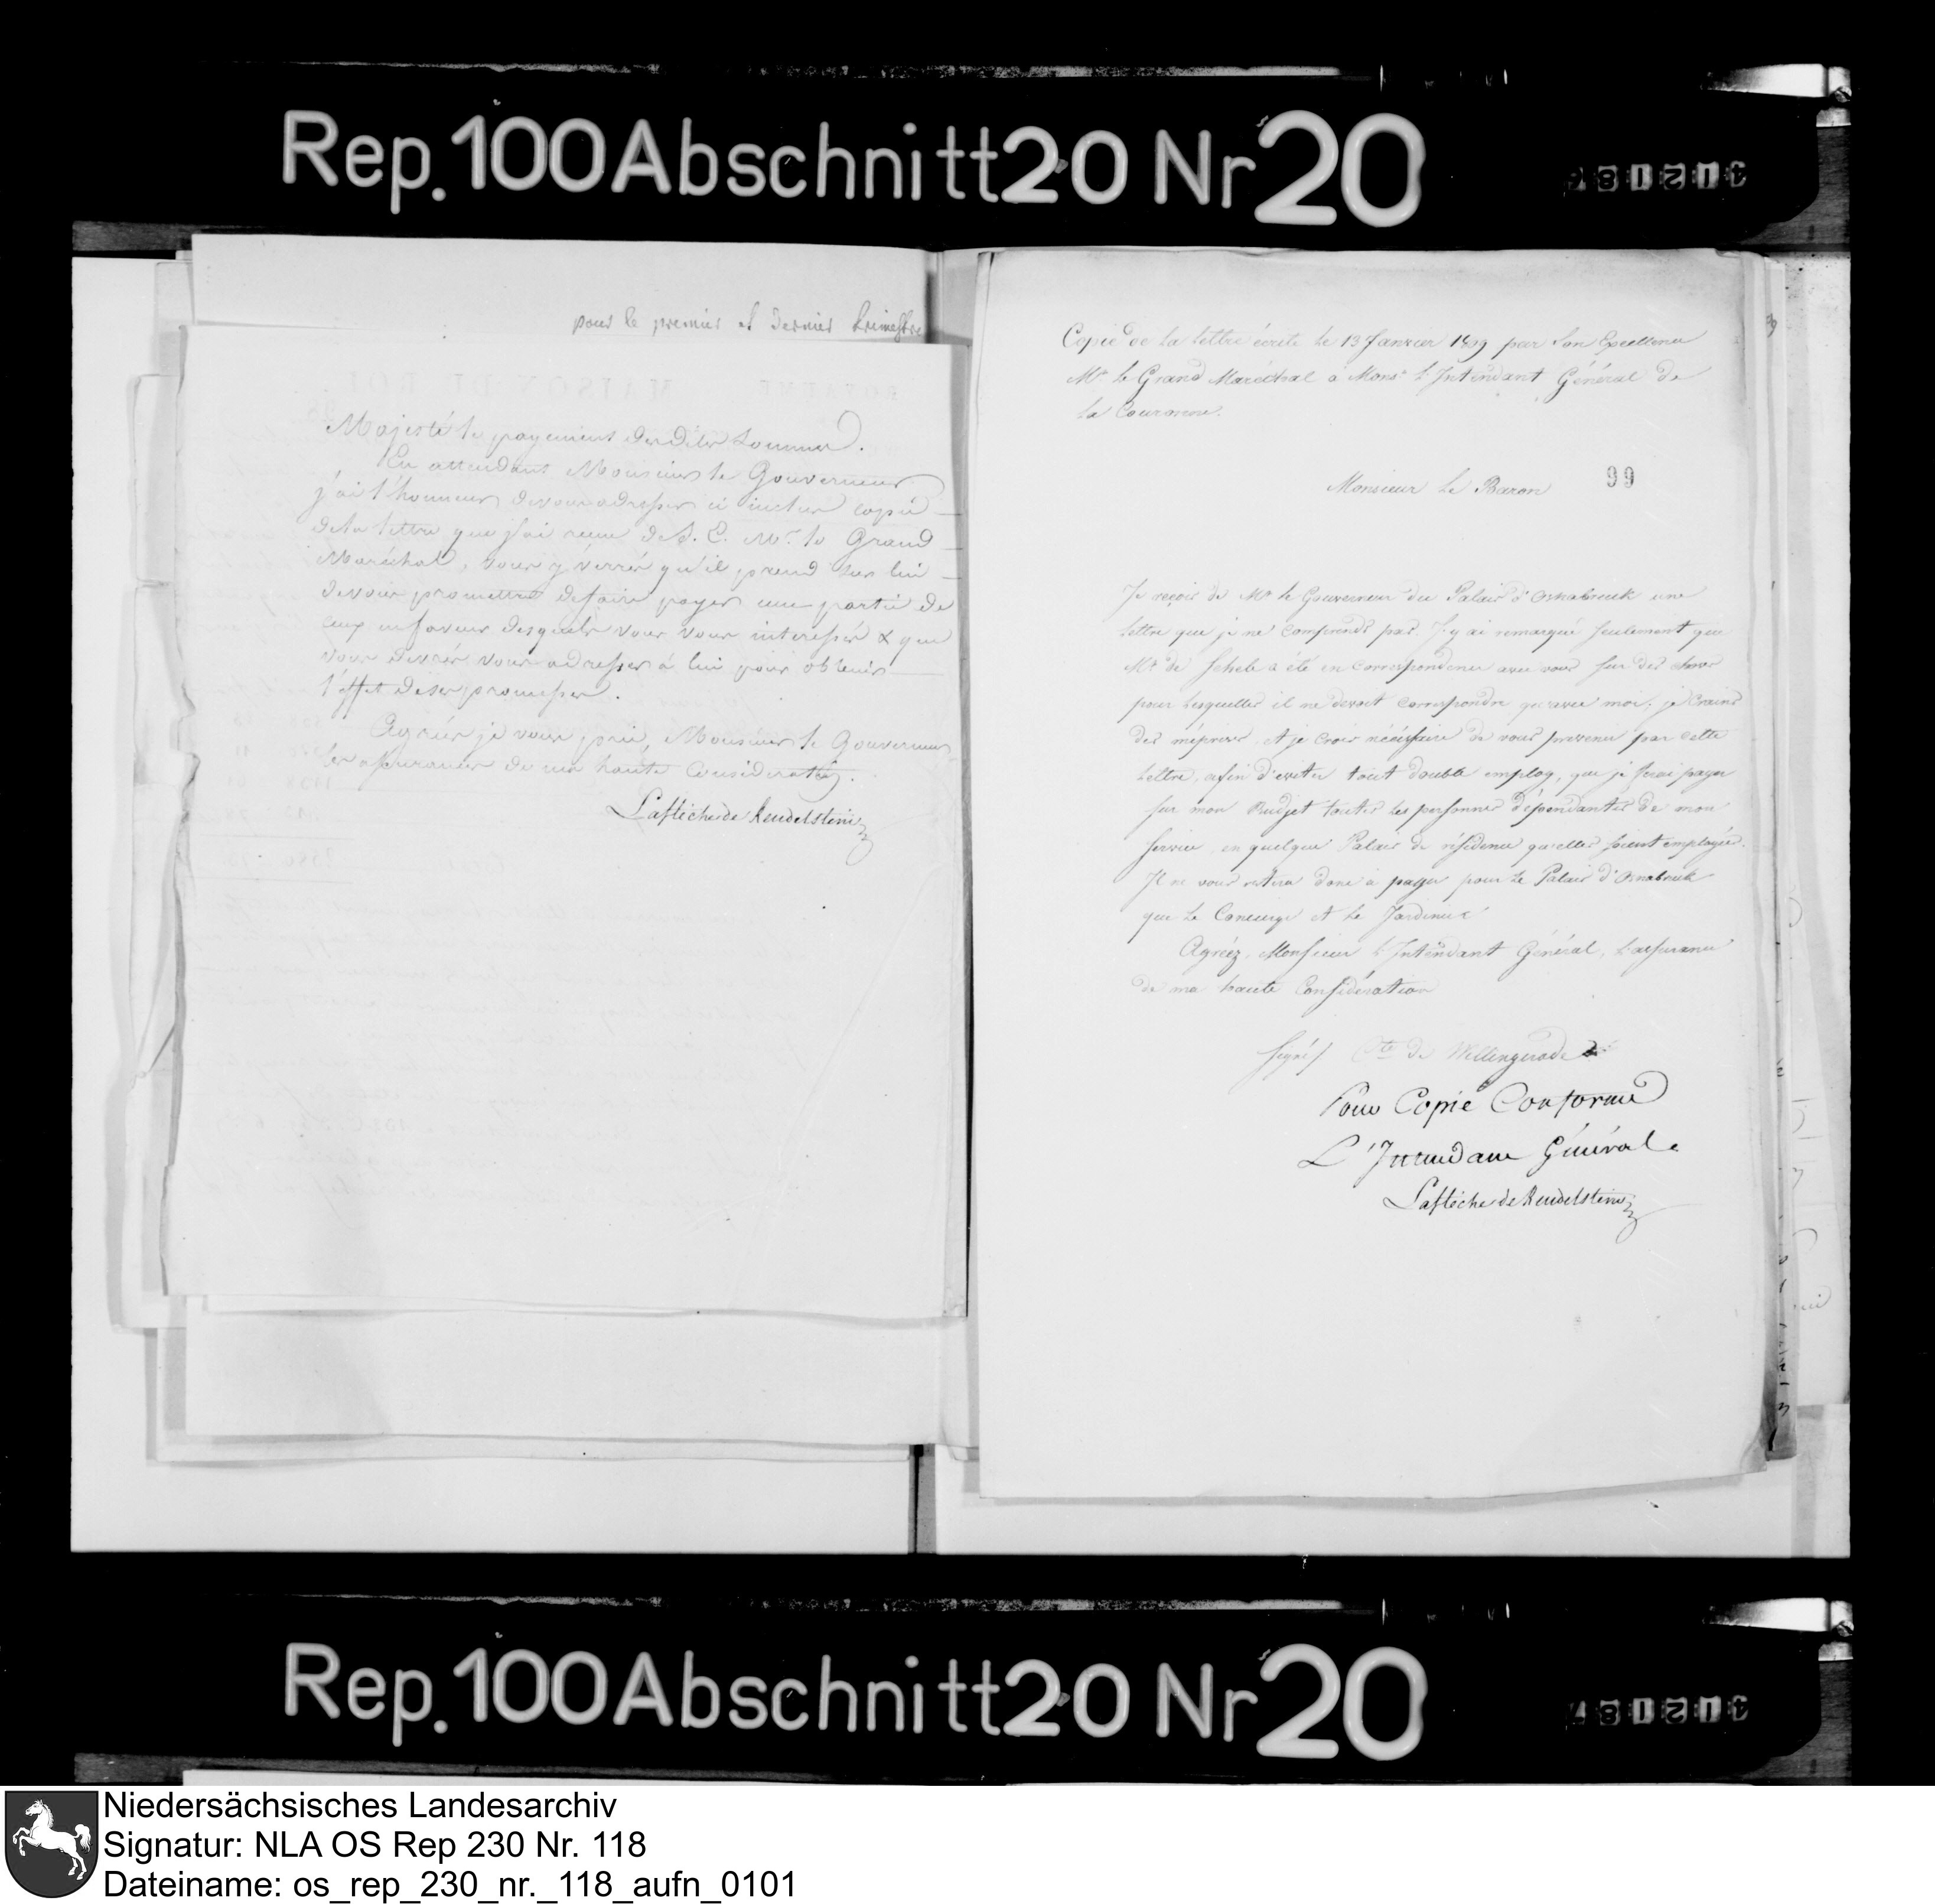 Rep. 100 Abschnitt 20 Nr 20
pour le premier et dernier trimestre
Majesté le payement desdites sommes.
En attendant Monsieur le Gouverneur
j'ai l'honneur de vous adresser ci incluse copie
de la lettre que j'ai reçue de S. E. Mr. le Grand
Maréchal, vous y verrés qu'il prend sur lui
devoir promettre de faire payer une partie de
ceux en faveur desquels vous vous interessés & que
vous devrés vous adresser à lui pour obtenir
l'effet de ses promesses.
Agréés je vous prie, Monsieur le Gouverneur
les assurances de ma haute Consideration.
Lafleche de Keudelstein
Copie de la lettre écrite le 13 Janvier 1809 par Son Excellence
Mr le Grand Maréchal a Monsr l'Intendant Général de
la Couronne.
99
Monsieur le Baron
Je reçois de Mr le Gouverneur du Palais d'Osnabruck une
lettre que je ne comprends pas. J'y ai remarqué seulement que
Mr de Schele a été en correspondence avec vous sur des choses
pour lesquelles il ne devoit correspondre qu'avec moi. je crains
des méprises et je crois nécéssaire de vous prevenir par cette
lettre, afin d'eviter tout double employ, que je ferai payer
sur mon Budjet toutes les personnes dépendantes de mon
service, en quelque Palais de résidence qu'elles soient employées.
Il ne vous restera donc à payer pour le Palais d'Osnabruck
que le Concierge et le Jardinier
Agréez, Monsieur l'Intendant Général, l'assurance
de ma haute Considération
signé/ Cte de Wellingerode
Pour Copie Conforme
L'Intendant Général.
Lafleche de Keudelstein
Rep. 100 Abschnitt 20 Nr 20
Niedersächsisches Landesarchiv
Signatur: NLA OS Rep 230 Nr. 118
Dateiname: os_rep_230_nr._118_aufn_0101